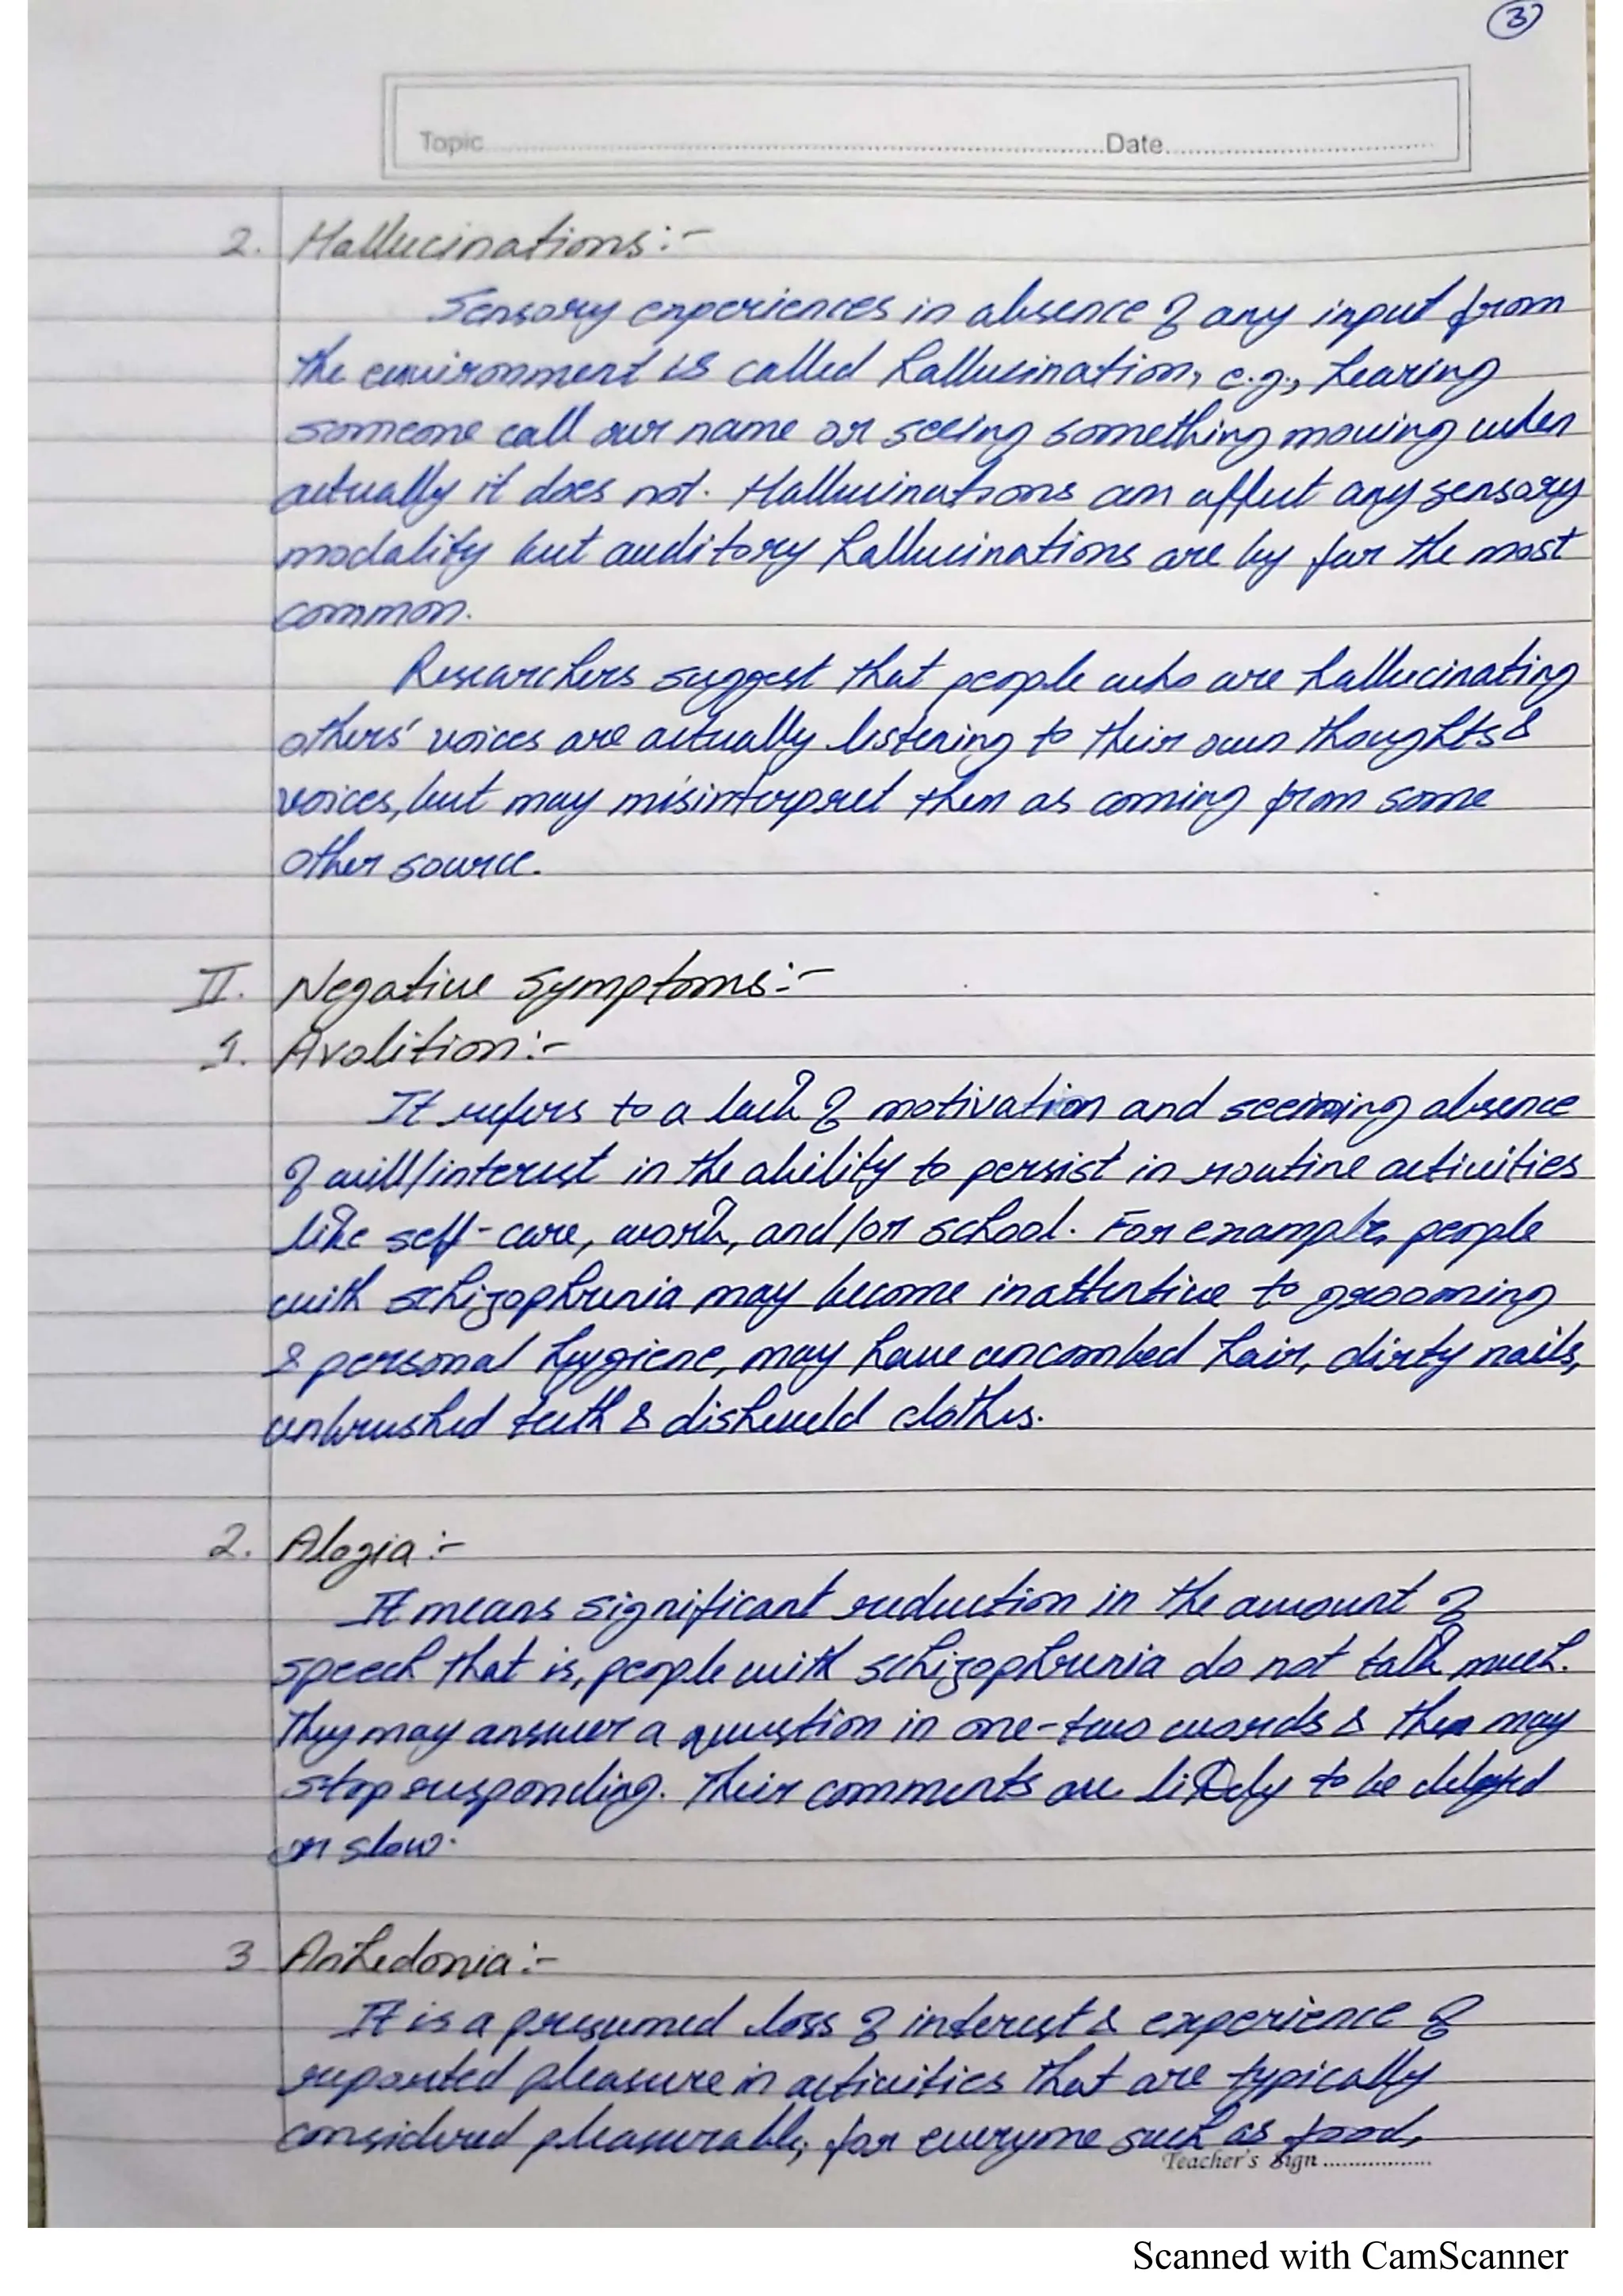 3
Topic Date
2. Hallucinations:-
Sensory experiences in absence of any input from
the environment is called hallucination, e.g., hearing
someone call our name or seeing something moving when
actually it does not. Hallucinations can affect any sensory
modality but auditory hallucinations are by far the most
common.
Researchers suggest that people who are hallucinating
others' voices are actually listening to their own thoughts &
voices, but may misinterpret them as coming from some
other source.
II. Negative Symptoms:-
1. Avolition:-
It refers to a lack of motivation and seeming absence
of will/interest in the ability to persist in routine activities
like self-care, work, and/or school. For example, people
with schizophrenia may become inattentive to grooming
& personal hygiene, may have uncombed hair, dirty nails,
unbrushed teeth & disheveld clothes.
2. Alogia:-
It means significant reduction in the amount of
speech that is, people with schizophrenia do not talk much.
They may answer a question in one-two words & then may
stop responding. Their comments are likely to be delayed
or slow.
3 Anhedonia:-
It is a presumed loss of interest & experience of
reported pleasure in activities that are typically
considered pleasurable, for everyone such as food,
Teacher's Sign
Scanned with CamScanner